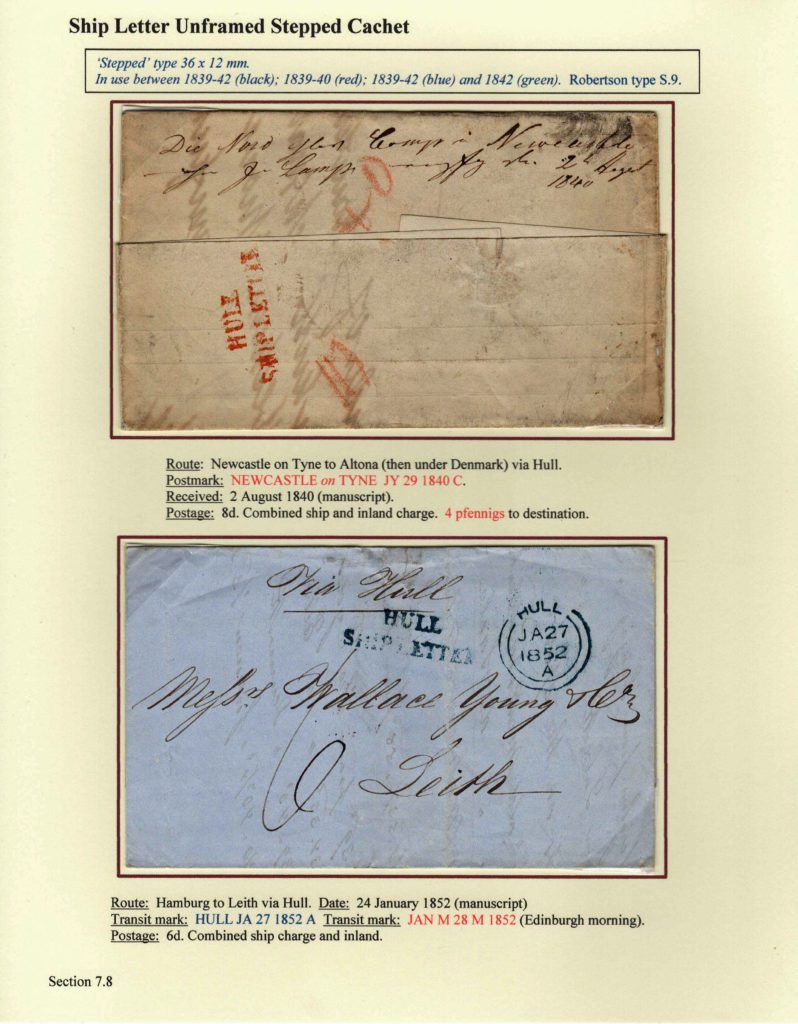 Ship Letter Unframed Stepped Cachet
'Stepped' type 36 x 12 mm.
In use between 1839-42 (black); 1839-40 (red); 1839-42 (blue) and 1842 (green). Robertson type S.9.
Die Nord Comp Newcastle
2 August
1840
HULL
SHIP LETTER
Route: Newcastle on Tyne to Altona (then under Denmark) via Hull.
Postmark: NEWCASTLE on TYNE JY 29 1840 C.
Received: 2 August 1840 (manuscript).
Postage: 8d. Combined ship and inland charge. 4 pfennigs to destination.
Via Hull
HULL
SHIP LETTER
HULL
JA27
1852
A
Messrs Wallace Young & Co
6
Leith
Route: Hamburg to Leith via Hull. Date: 24 January 1852 (manuscript)
Transit mark: HULL JA 27 1852 A Transit mark: JAN M 28 M 1852 (Edinburgh morning).
Postage: 6d. Combined ship charge and inland.
Section 7.8